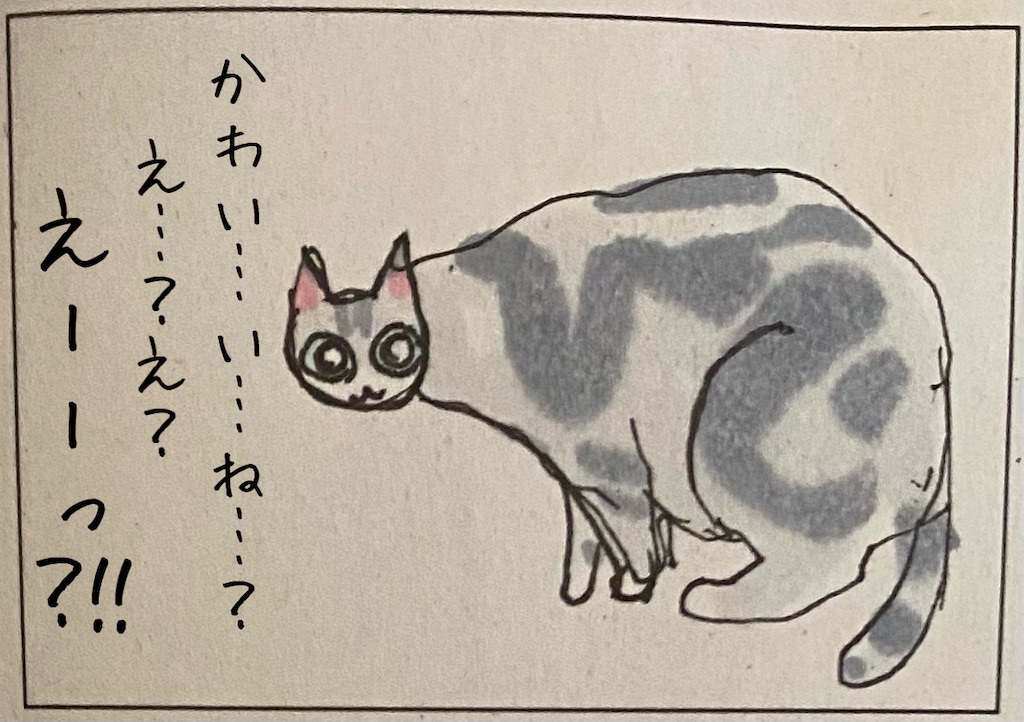 かわい……い……ね……？
え……？え？
えーーっ?!!